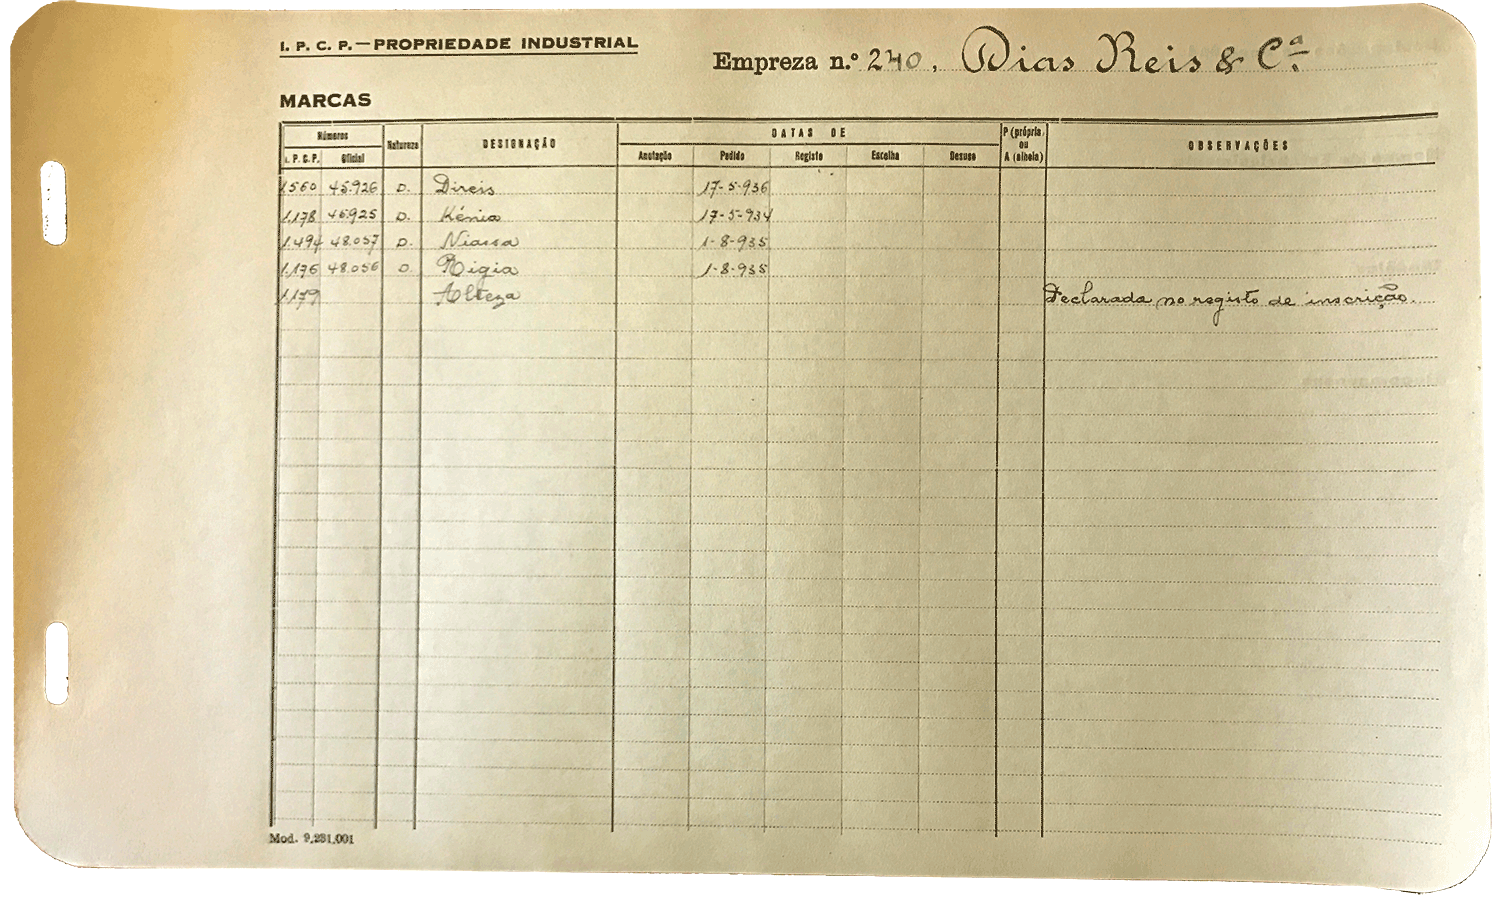 I. P. C. P. — PROPRIEDADE INDUSTRIAL
Empreza n.º 240, Dias Reis & Cª
MARCAS
Números Natureza DESIGNAÇÃO DATAS DE P (própria) ou A (alheia) OBSERVAÇÕES
I. P. C. P. Oficial Anotação Pedido Registo Escolha Desuso
1.560 45.926 D. Direis 17-5-936
1.178 45.925 D. Kénia 17-5-934
1.494 48.057 D. Niassa 1-8-935
1.176 48.056 D. Rigia 1-8-935
1.179 Alteza Declarada no registo de inscrição.
Mod. 9,231,001